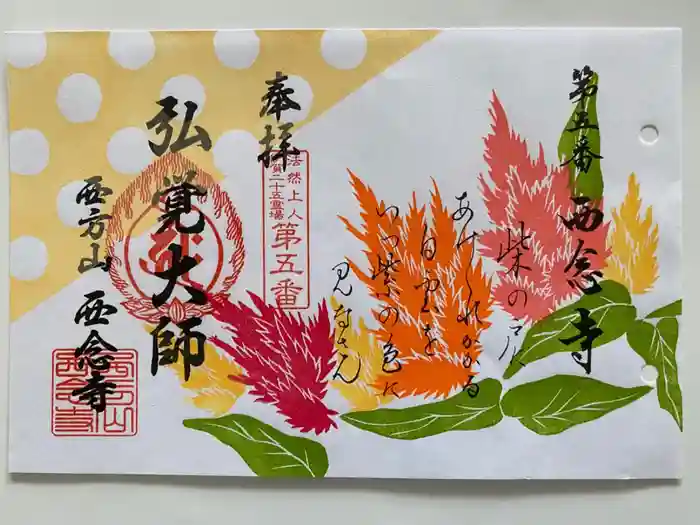 第五番 西念寺
柴の戸に
あけくれかかる
白雲を
いつ紫の色に
見なさん
奉拝
法然上人
賀二十五霊場
第五番
弘覚大師
西方山 西念寺
西方山
西念寺